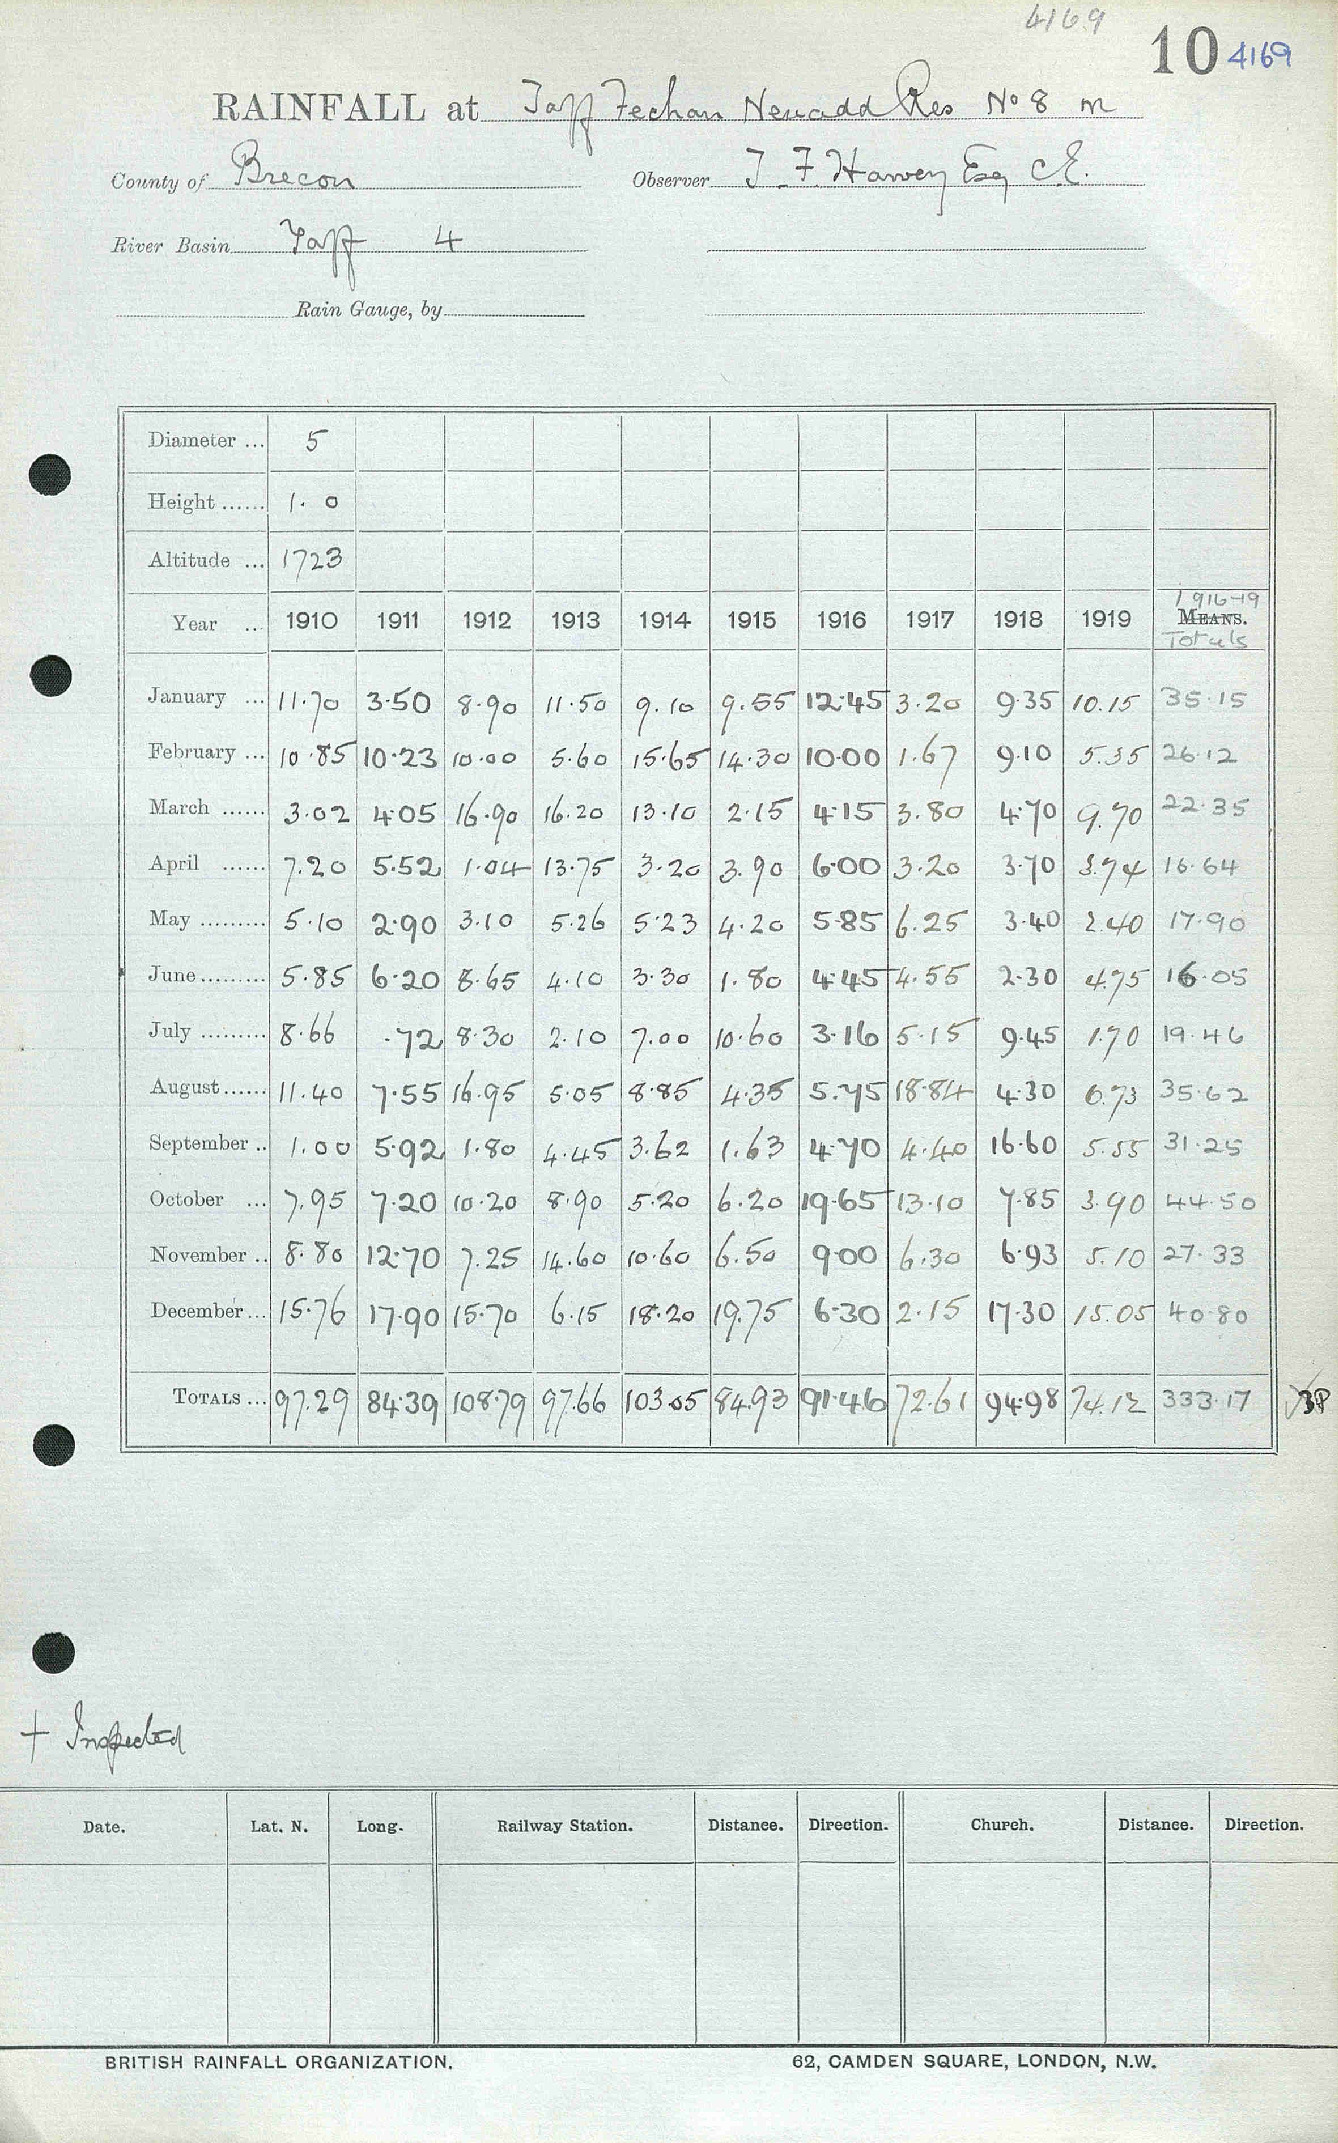 4169
10 4169
RAINFALL at Taff Fechan Neuadd Res No 8 m
County of Brecon Observer T. F. Harvey Esq C.E.
River Basin Taff 4
Rain Gauge, by
Diameter ... 5
Height ...... 1. 0
Altitude ... 1723
1916-19
Year .. 1910 1911 1912 1913 1914 1915 1916 1917 1918 1919 MEANS.
Totals
January ... 11.70 3.50 8.90 11.50 9.10 9.55 12.45 3.20 9.35 10.15 35.15
February ... 10.85 10.23 10.00 5.60 15.65 14.30 10.00 1.67 9.10 5.35 26.12
March ...... 3.02 4.05 16.90 16.20 13.10 2.15 4.15 3.80 4.70 9.70 22.35
April ...... 7.20 5.52 1.04 13.75 3.20 3.90 6.00 3.20 3.70 3.74 16.64
May ......... 5.10 2.90 3.10 5.26 5.23 4.20 5.85 6.25 3.40 2.40 17.90
June ......... 5.85 6.20 8.65 4.10 3.30 1.80 4.45 4.55 2.30 4.75 16.05
July ......... 8.66 .72 8.30 2.10 7.00 10.60 3.16 5.15 9.45 1.70 19.46
August ...... 11.40 7.55 16.95 5.05 8.85 4.35 5.75 18.84 4.30 6.73 35.62
September .. 1.00 5.92 1.80 4.45 3.62 1.63 4.70 4.40 16.60 5.55 31.25
October ... 7.95 7.20 10.20 8.90 5.20 6.20 19.65 13.10 7.85 3.90 44.50
November .. 8.80 12.70 7.25 14.60 10.60 6.50 9.00 6.30 6.93 5.10 27.33
December ... 15.76 17.90 15.70 6.15 18.20 19.75 6.30 2.15 17.30 15.05 40.80
TOTALS ... 97.29 84.39 108.79 97.66 103.05 84.93 91.46 72.61 94.98 74.12 333.17
+ Inspected
Date. Lat. N. Long. Railway Station. Distance. Direction. Church. Distance. Direction.
BRITISH RAINFALL ORGANIZATION. 62, CAMDEN SQUARE, LONDON, N.W.